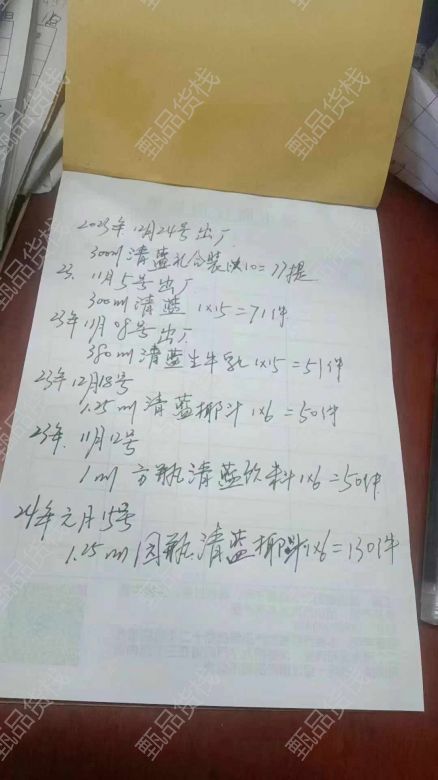 2023年12月24号出厂
300ml清蓝礼合装1x10=77提
23.11月5号出厂
300ml清蓝1x15=71件
23年11月08号出厂
380ml清蓝生牛乳1x15=51件
23年12月18号
1.25ml清蓝椰汁1x6=50件
23年.11月12号
1ml方瓶清蓝饮料1x6=50件
24年元月15号
1.25ml圆瓶清蓝椰汁1x6=130件
甄品货栈